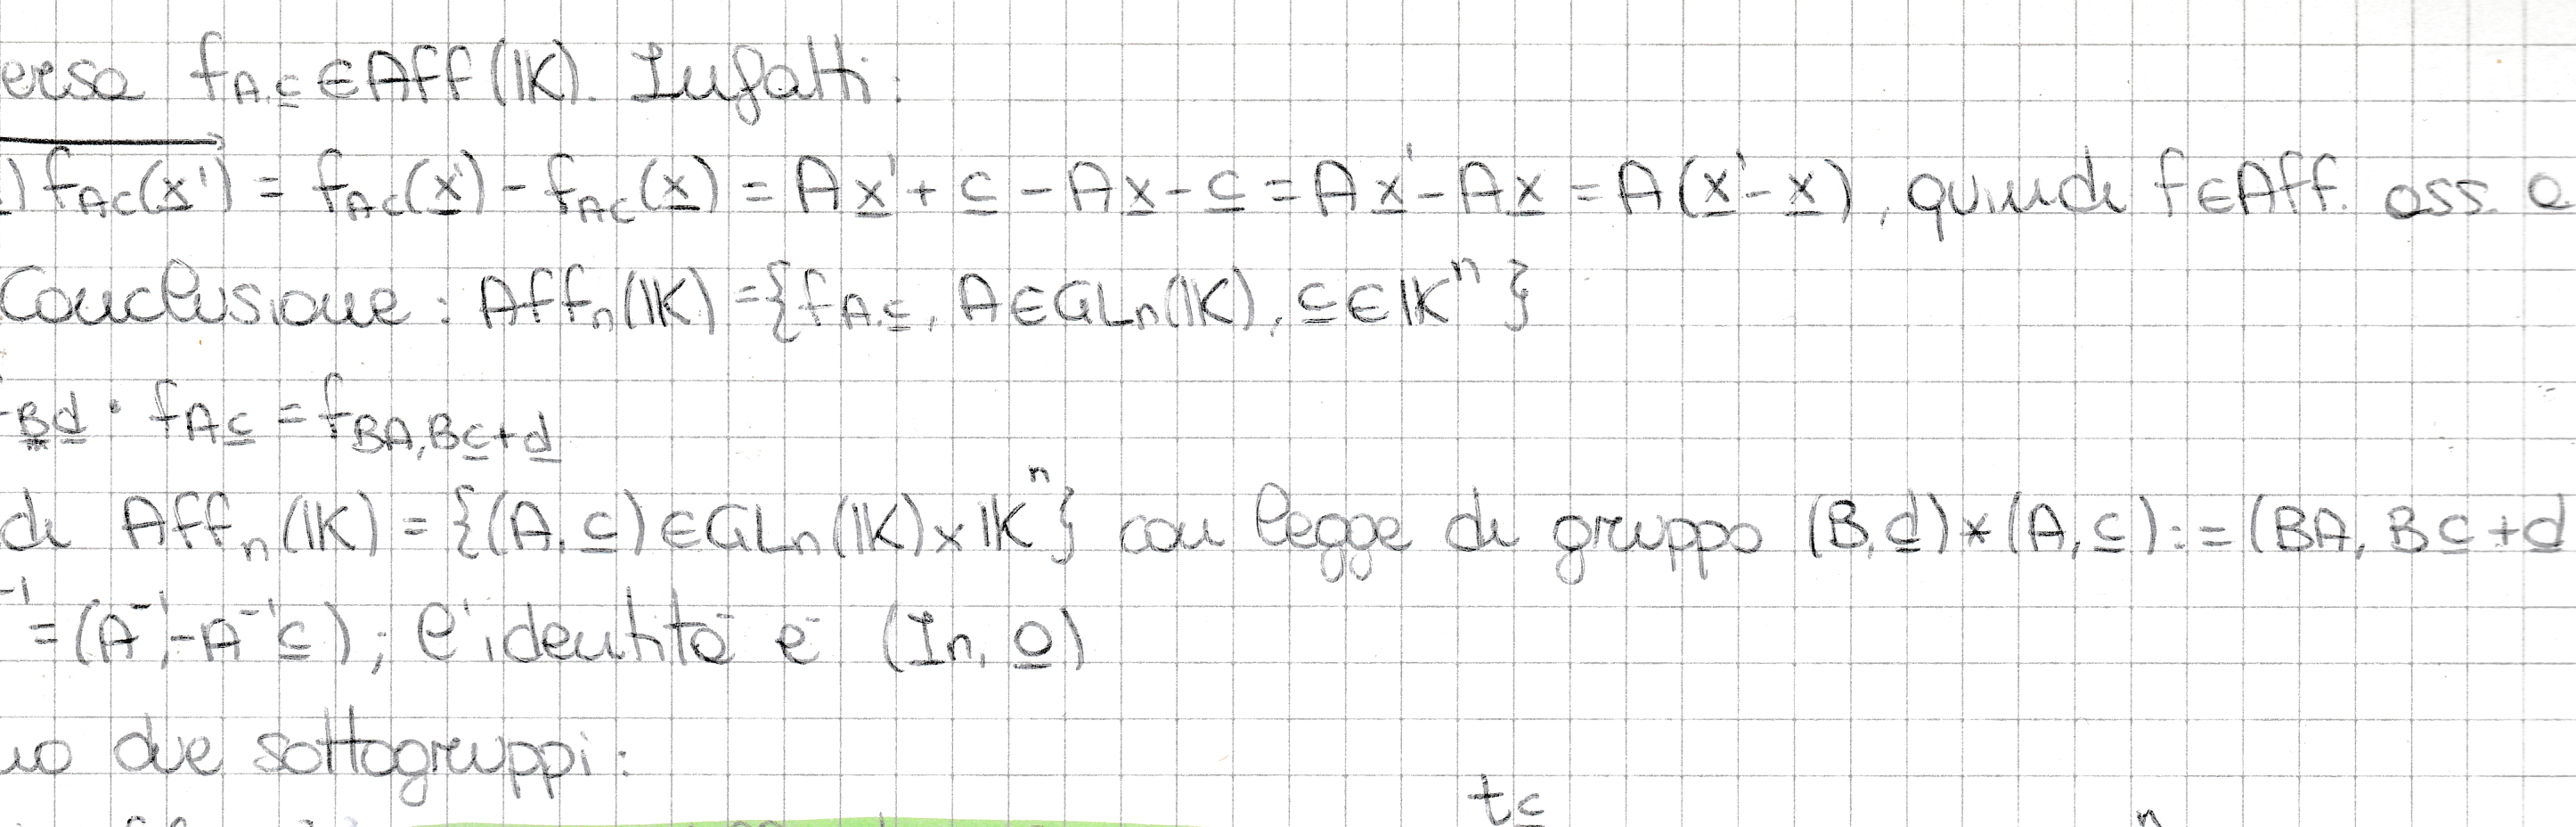 ersa f_{A,c} ∈ Aff(K). Infatti:
) f_{Ac}(x') = f_{Ac}(x') - f_{Ac}(x) = Ax' + c - Ax - c = Ax' - Ax = A(x' - x), quindi f ∈ Aff. ass. a
Conclusione: Aff_n(K) = {f_{A,c}, A ∈ GL_n(K), c ∈ K^n}
_{Bd} · f_{Ac} = f_{BA, Bc+d}
di Aff_n(K) = {(A, c) ∈ GL_n(K) × K^n} con legge di gruppo (B, d) * (A, c) := (BA, Bc + d
^{-1} = (A^{-1}, -A^{-1}c); l'identità è (In, 0)
no due sottogruppi:
t_c
n